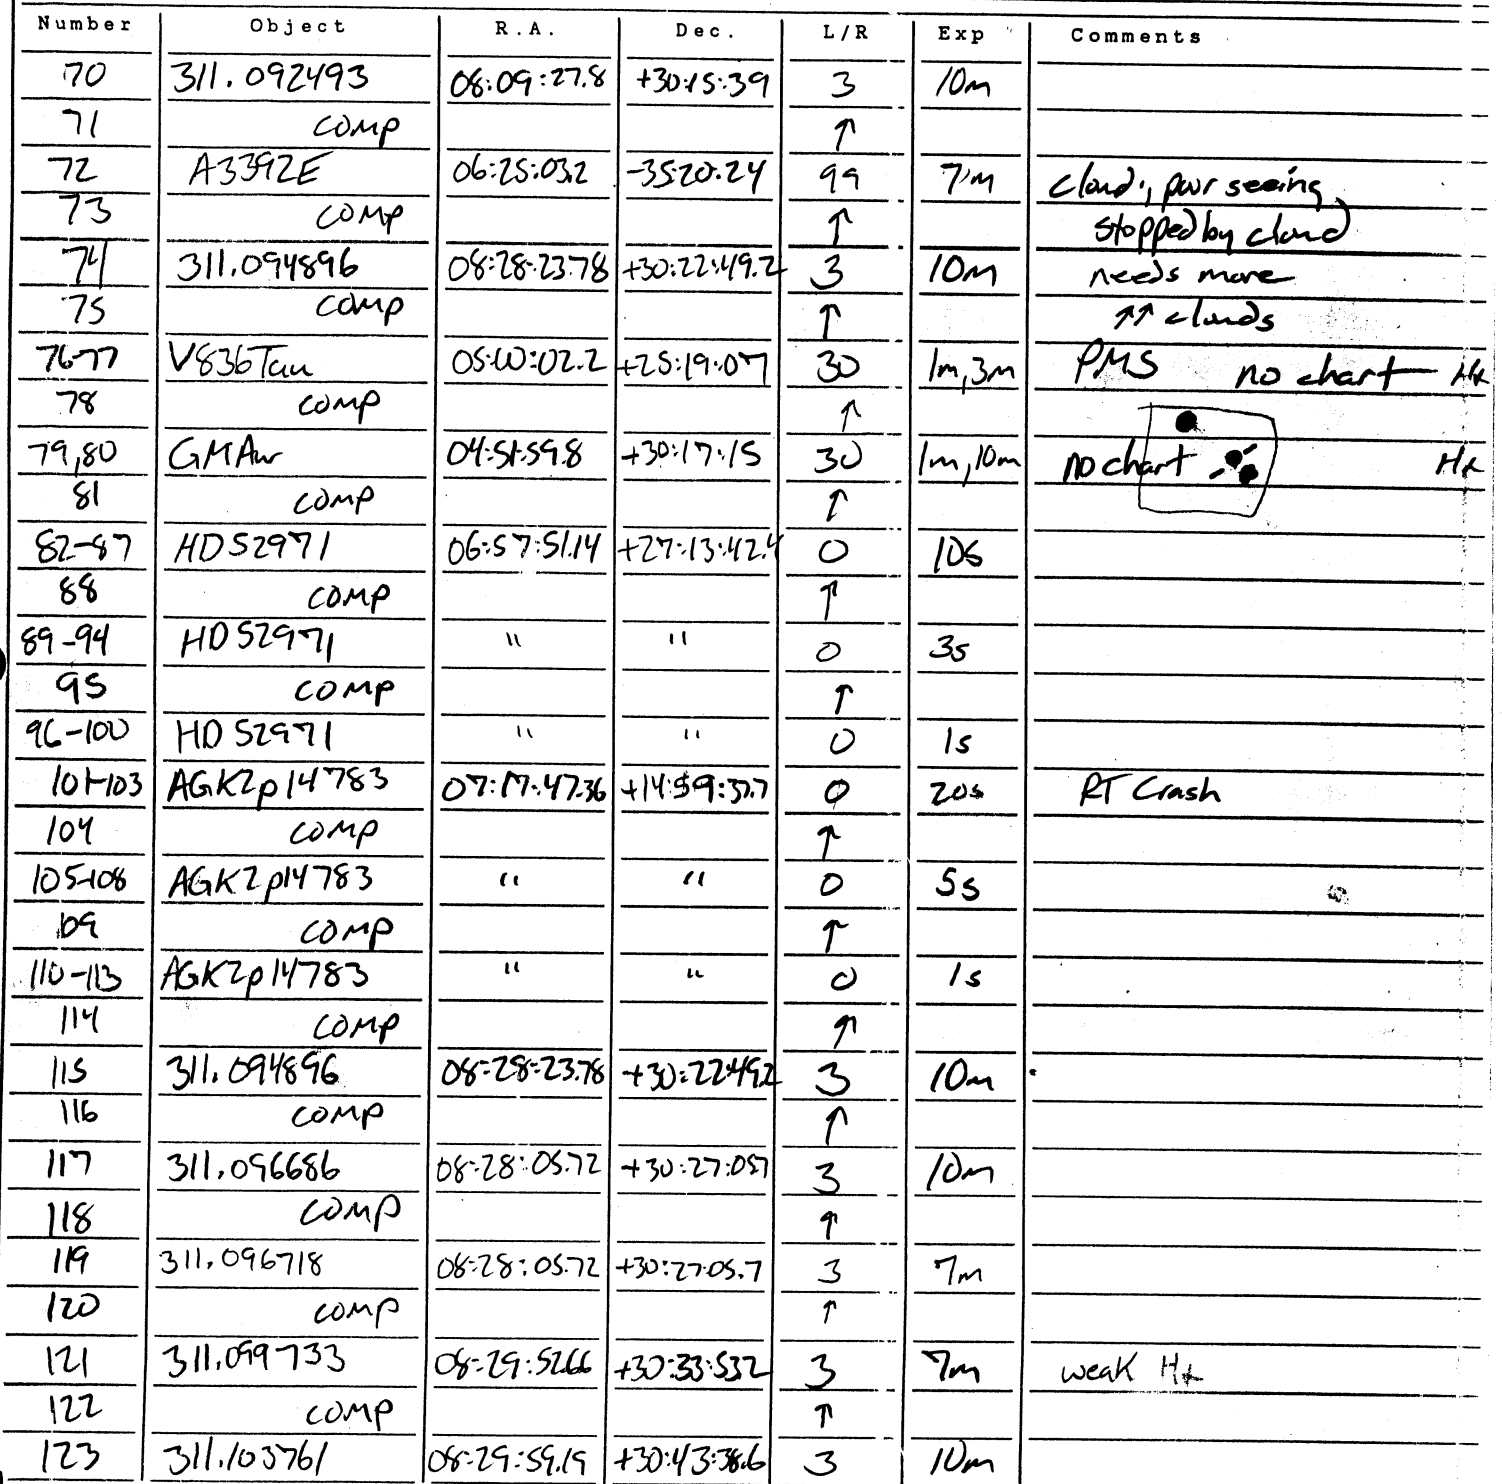 Number Object R.A. Dec. L/R Exp Comments
70 311.092493 08:09:27.8 +30:15:39 3 10m
71 COMP ↑
72 A3392E 06:25:03.2 -35:20:24 99 7m cloud, poor seeing
73 COMP ↑ stopped by cloud
74 311.094896 08:28:23.78 +30:22:49.2 3 10m needs more
75 COMP ↑ ↑↑ clouds
76-77 V836Tau +25:19:07 30 1m,3m PMS no chart Hα
78 COMP ↑
79,80 GMAur 04:51:59.8 +30:17:15 30 1m,10m no chart Hα
81 COMP ↑
82-87 HD52971 06:57:51.14 +27:13:42.4 0 10s
88 COMP ↑
89-94 HD52971 " " 0 3s
95 COMP ↑
96-100 HD52971 " " 0 1s
101-103 AGK2p14783 07:17:47.36 +14:59:37.7 0 20s RT Crash
104 COMP ↑
105-108 AGK2p14783 " " 0 5s
109 COMP ↑
110-113 AGK2p14783 " " 0 1s
114 COMP ↑
115 311.094896 08:28:23.78 +30:22:49.2 3 10m
116 COMP ↑
117 311.096686 08:28:05.72 +30:27:05.7 3 10m
118 COMP ↑
119 311.096718 08:28:05.72 +30:27:05.7 3 7m
120 COMP ↑
121 311.099733 08:29:52.66 +30:33:53.2 3 7m weak Hα
122 COMP ↑
123 311.103761 08:29:59.19 +30:43:38.6 3 10m